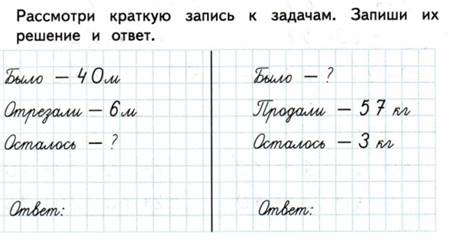 Рассмотри краткую запись к задачам. Запиши их
решение и ответ.
Было – 40м
Отрезали – 6м
Осталось – ?
Ответ:
Было – ?
Продали – 57 кг
Осталось – 3 кг
Ответ: